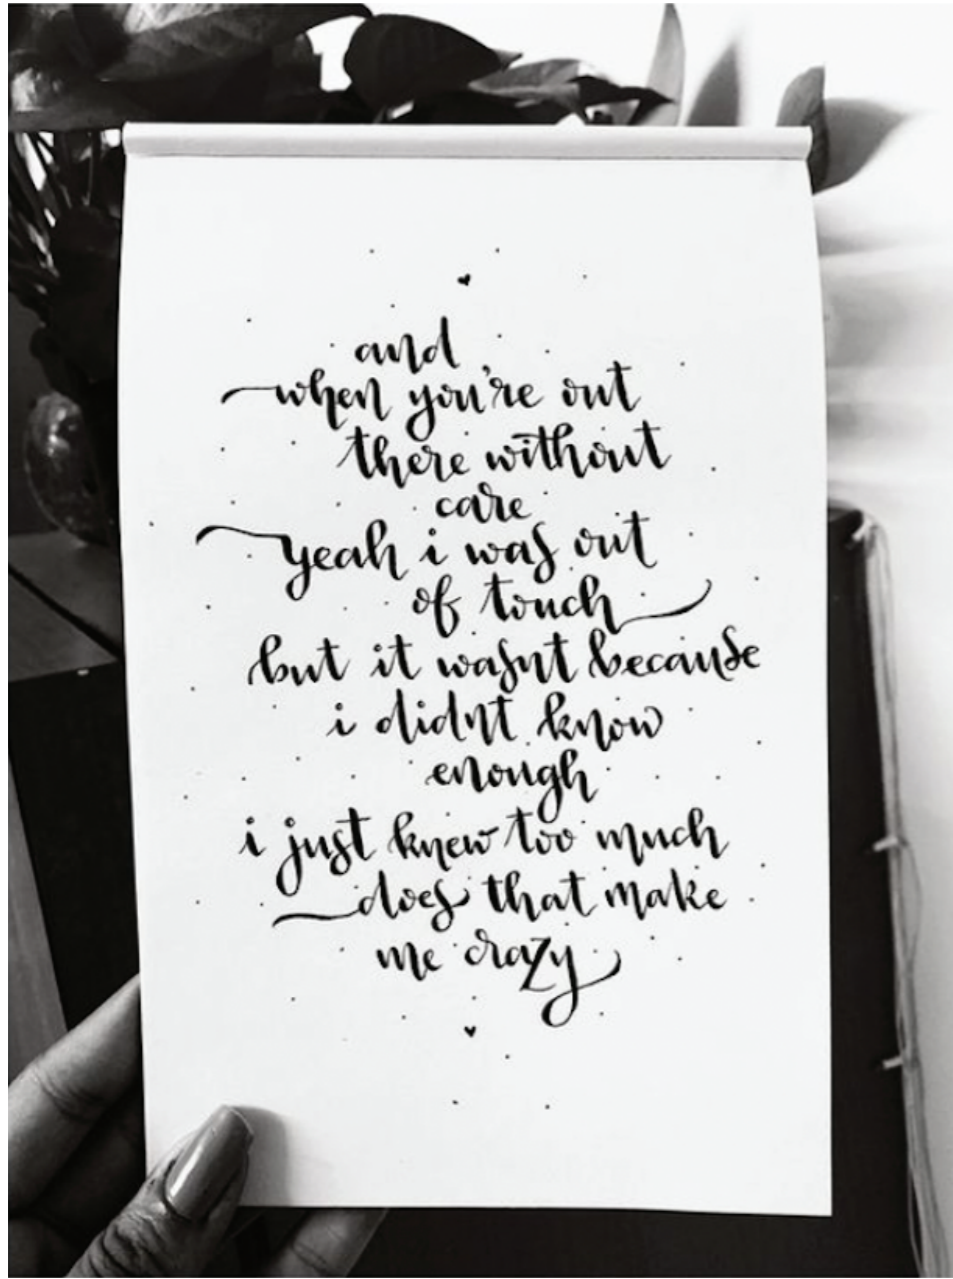 and
when you're out
there without
care
yeah i was out
of touch
but it wasnt because
i didnt know
enough
i just knew too much
does that make
me crazy